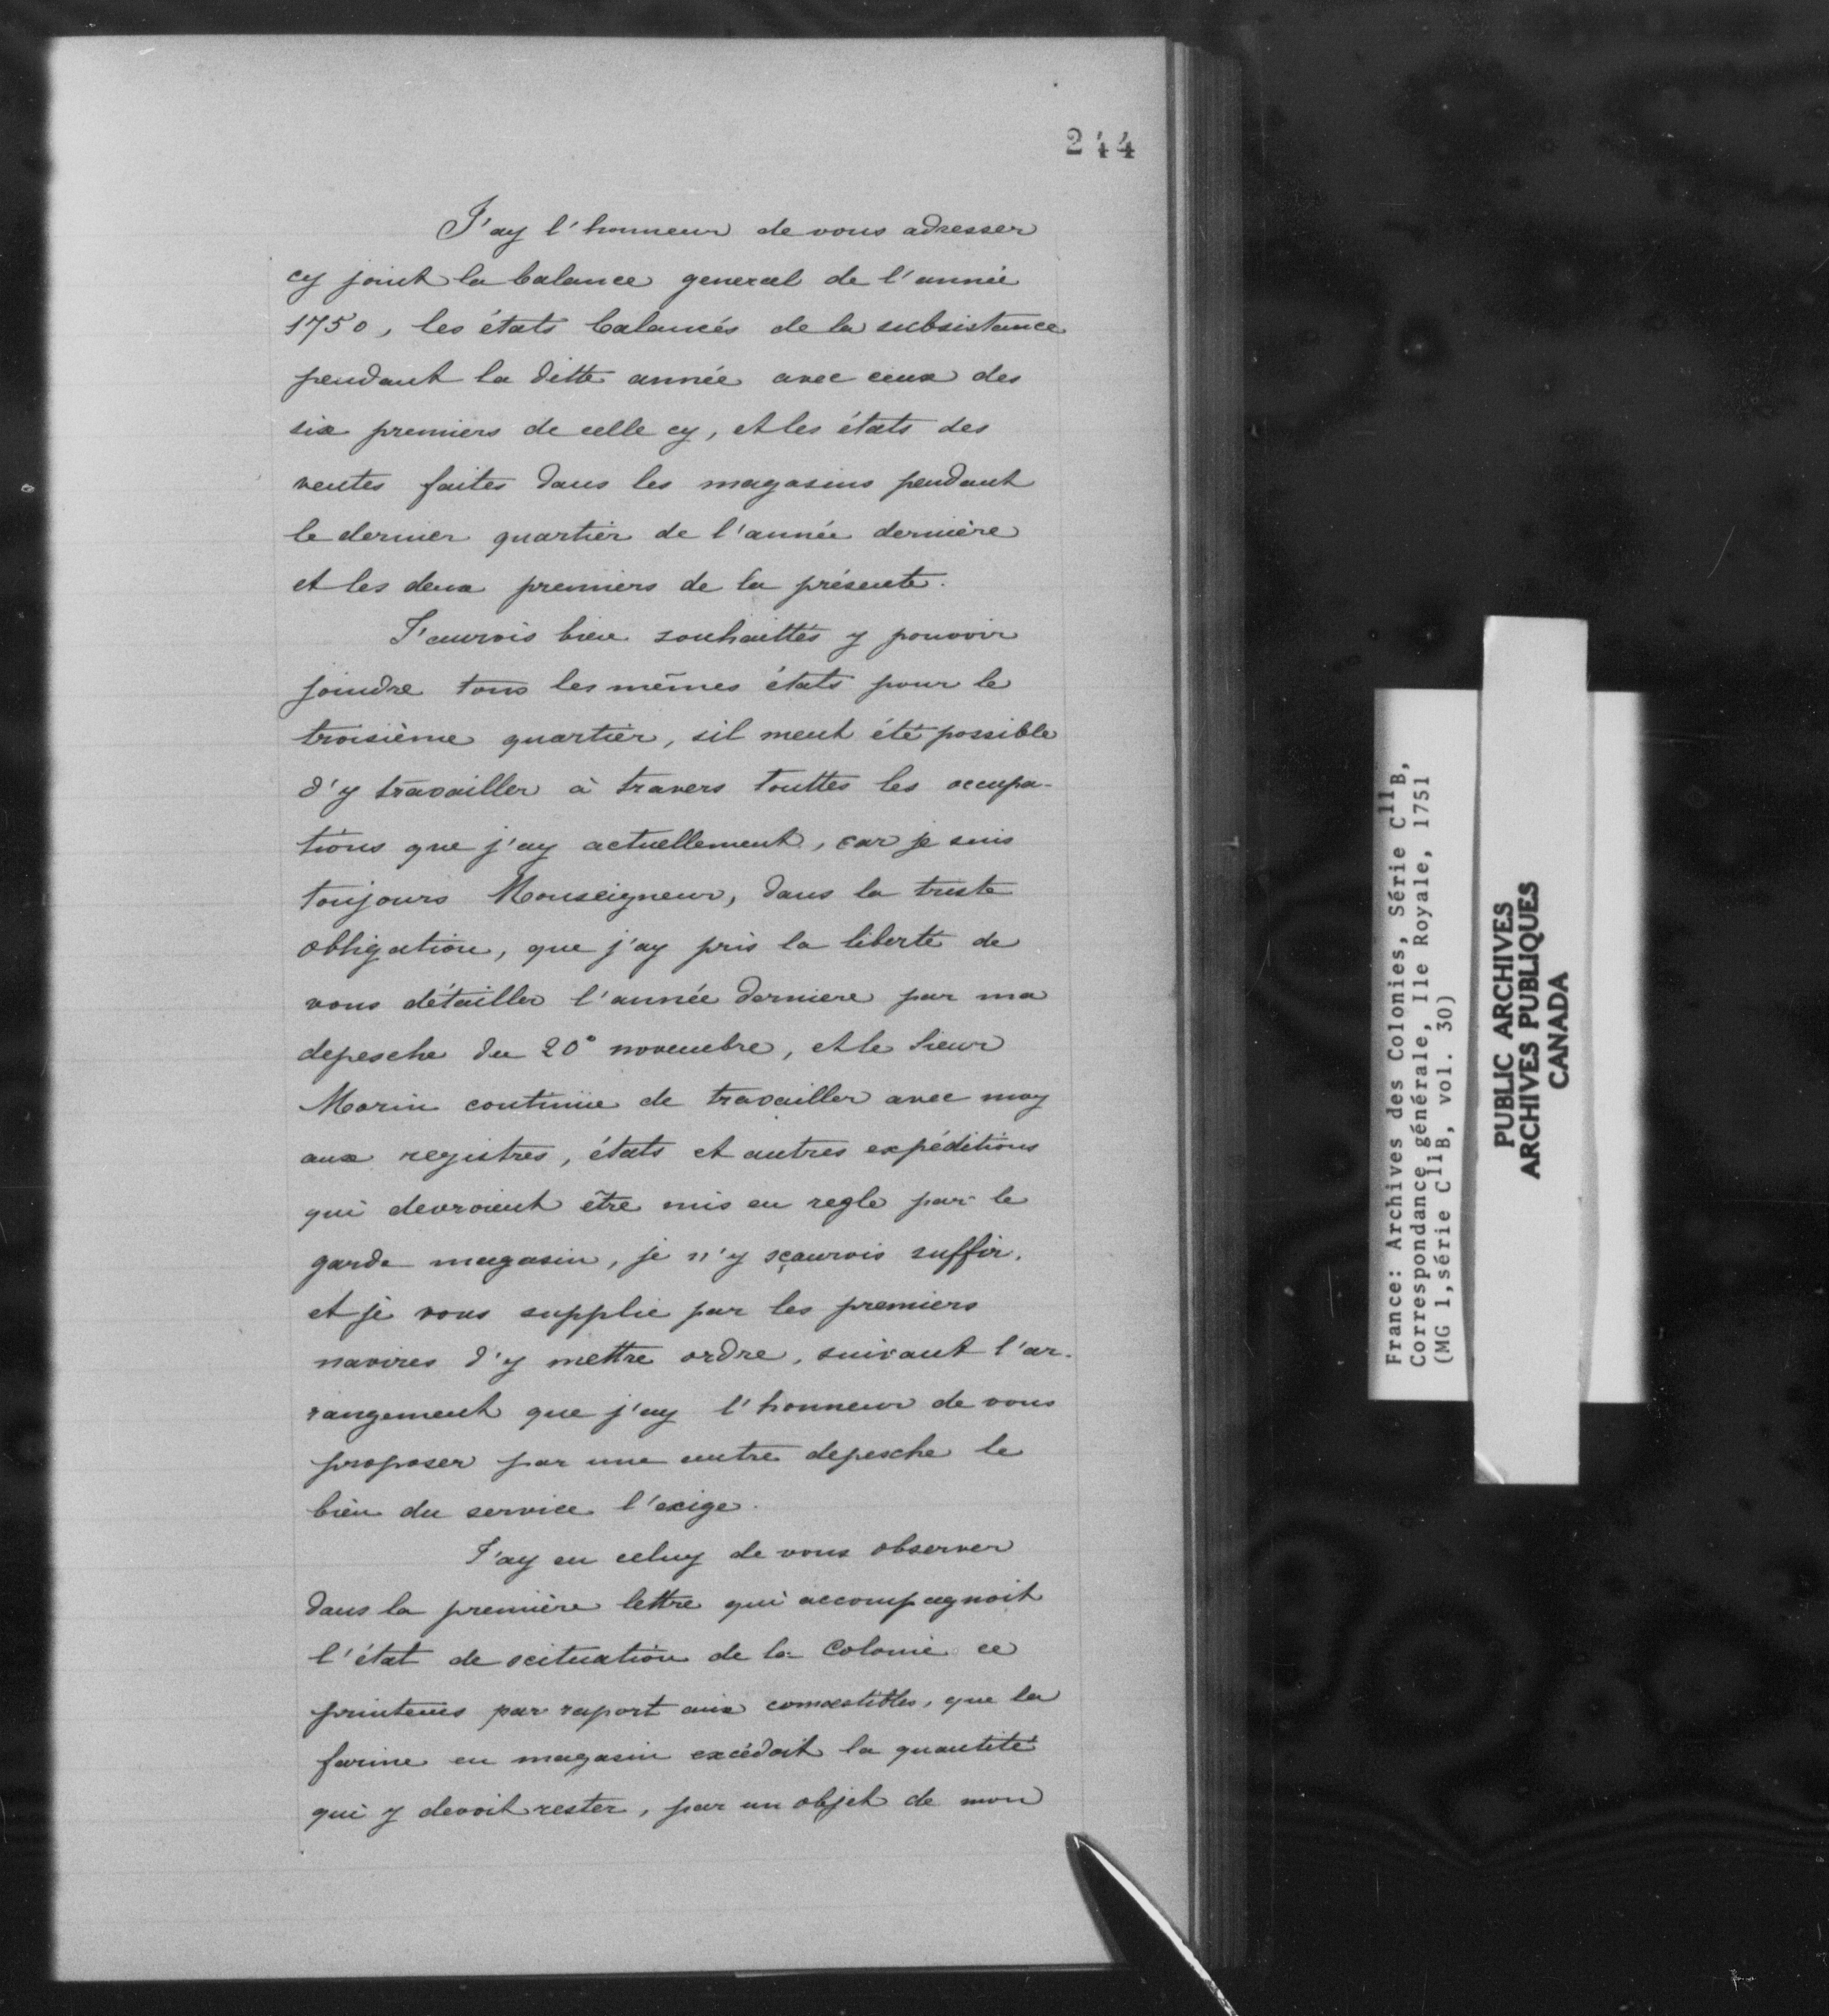 244
J'ay l'honneur de vous adresser
cy joint la balance general de l'année
1750, les états balancés de la subsistance
pendant la ditte année avec ceux des
six premiers de celle cy, et les états des
ventes faites dans les magasins pendant
le dernier quartier de l'année dernière
et les deux premiers de la présente.
J'aurois bien souhaittés y pouvoir
joindre tous les mêmes états pour le
troisième quartier, sil meut été possible
d'y travailler à travers touttes les occupa-
tions que j'ay actuellement, car je suis
toujours Monseigneur, dans la triste
obligation, que j'ay pris la liberté de
vous détailler l'année derniere par ma
depesche du 20e novembre, et le Sieur
Morin continüe de travailler avec moy
aux registres, états et autres expéditions
qui devroient être mis en regle par le
garde magasin, je n'y sçaurois suffir,
et je vous supplie par les premiers
navires d'y mettre ordre, suivant l'ar-
rangement que j'ay l'honneur de vous
proposer par une autre depesche le
bien du service l'exige.
J'ay eu celuy de vous observer
dans la première lettre qui accompagnoit
l'état de scituation de la Colonie ce
printems par raport aux comestibles, que la
farine en magasin excédoit la quantité
qui y devoit rester, par un objet de mon
France: Archives des Colonies, Série C11B,
Correspondance générale, Ile Royale, 1751
(MG 1, série C11B, vol. 30)
PUBLIC ARCHIVES
ARCHIVES PUBLIQUES
CANADA